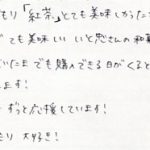 もり「紅茶」とても美味しかった
ても美味しい いと忠さんの和菓
いたまでも購入できる日がくると
ます!
ずっと応援しています!
もり 大好き!